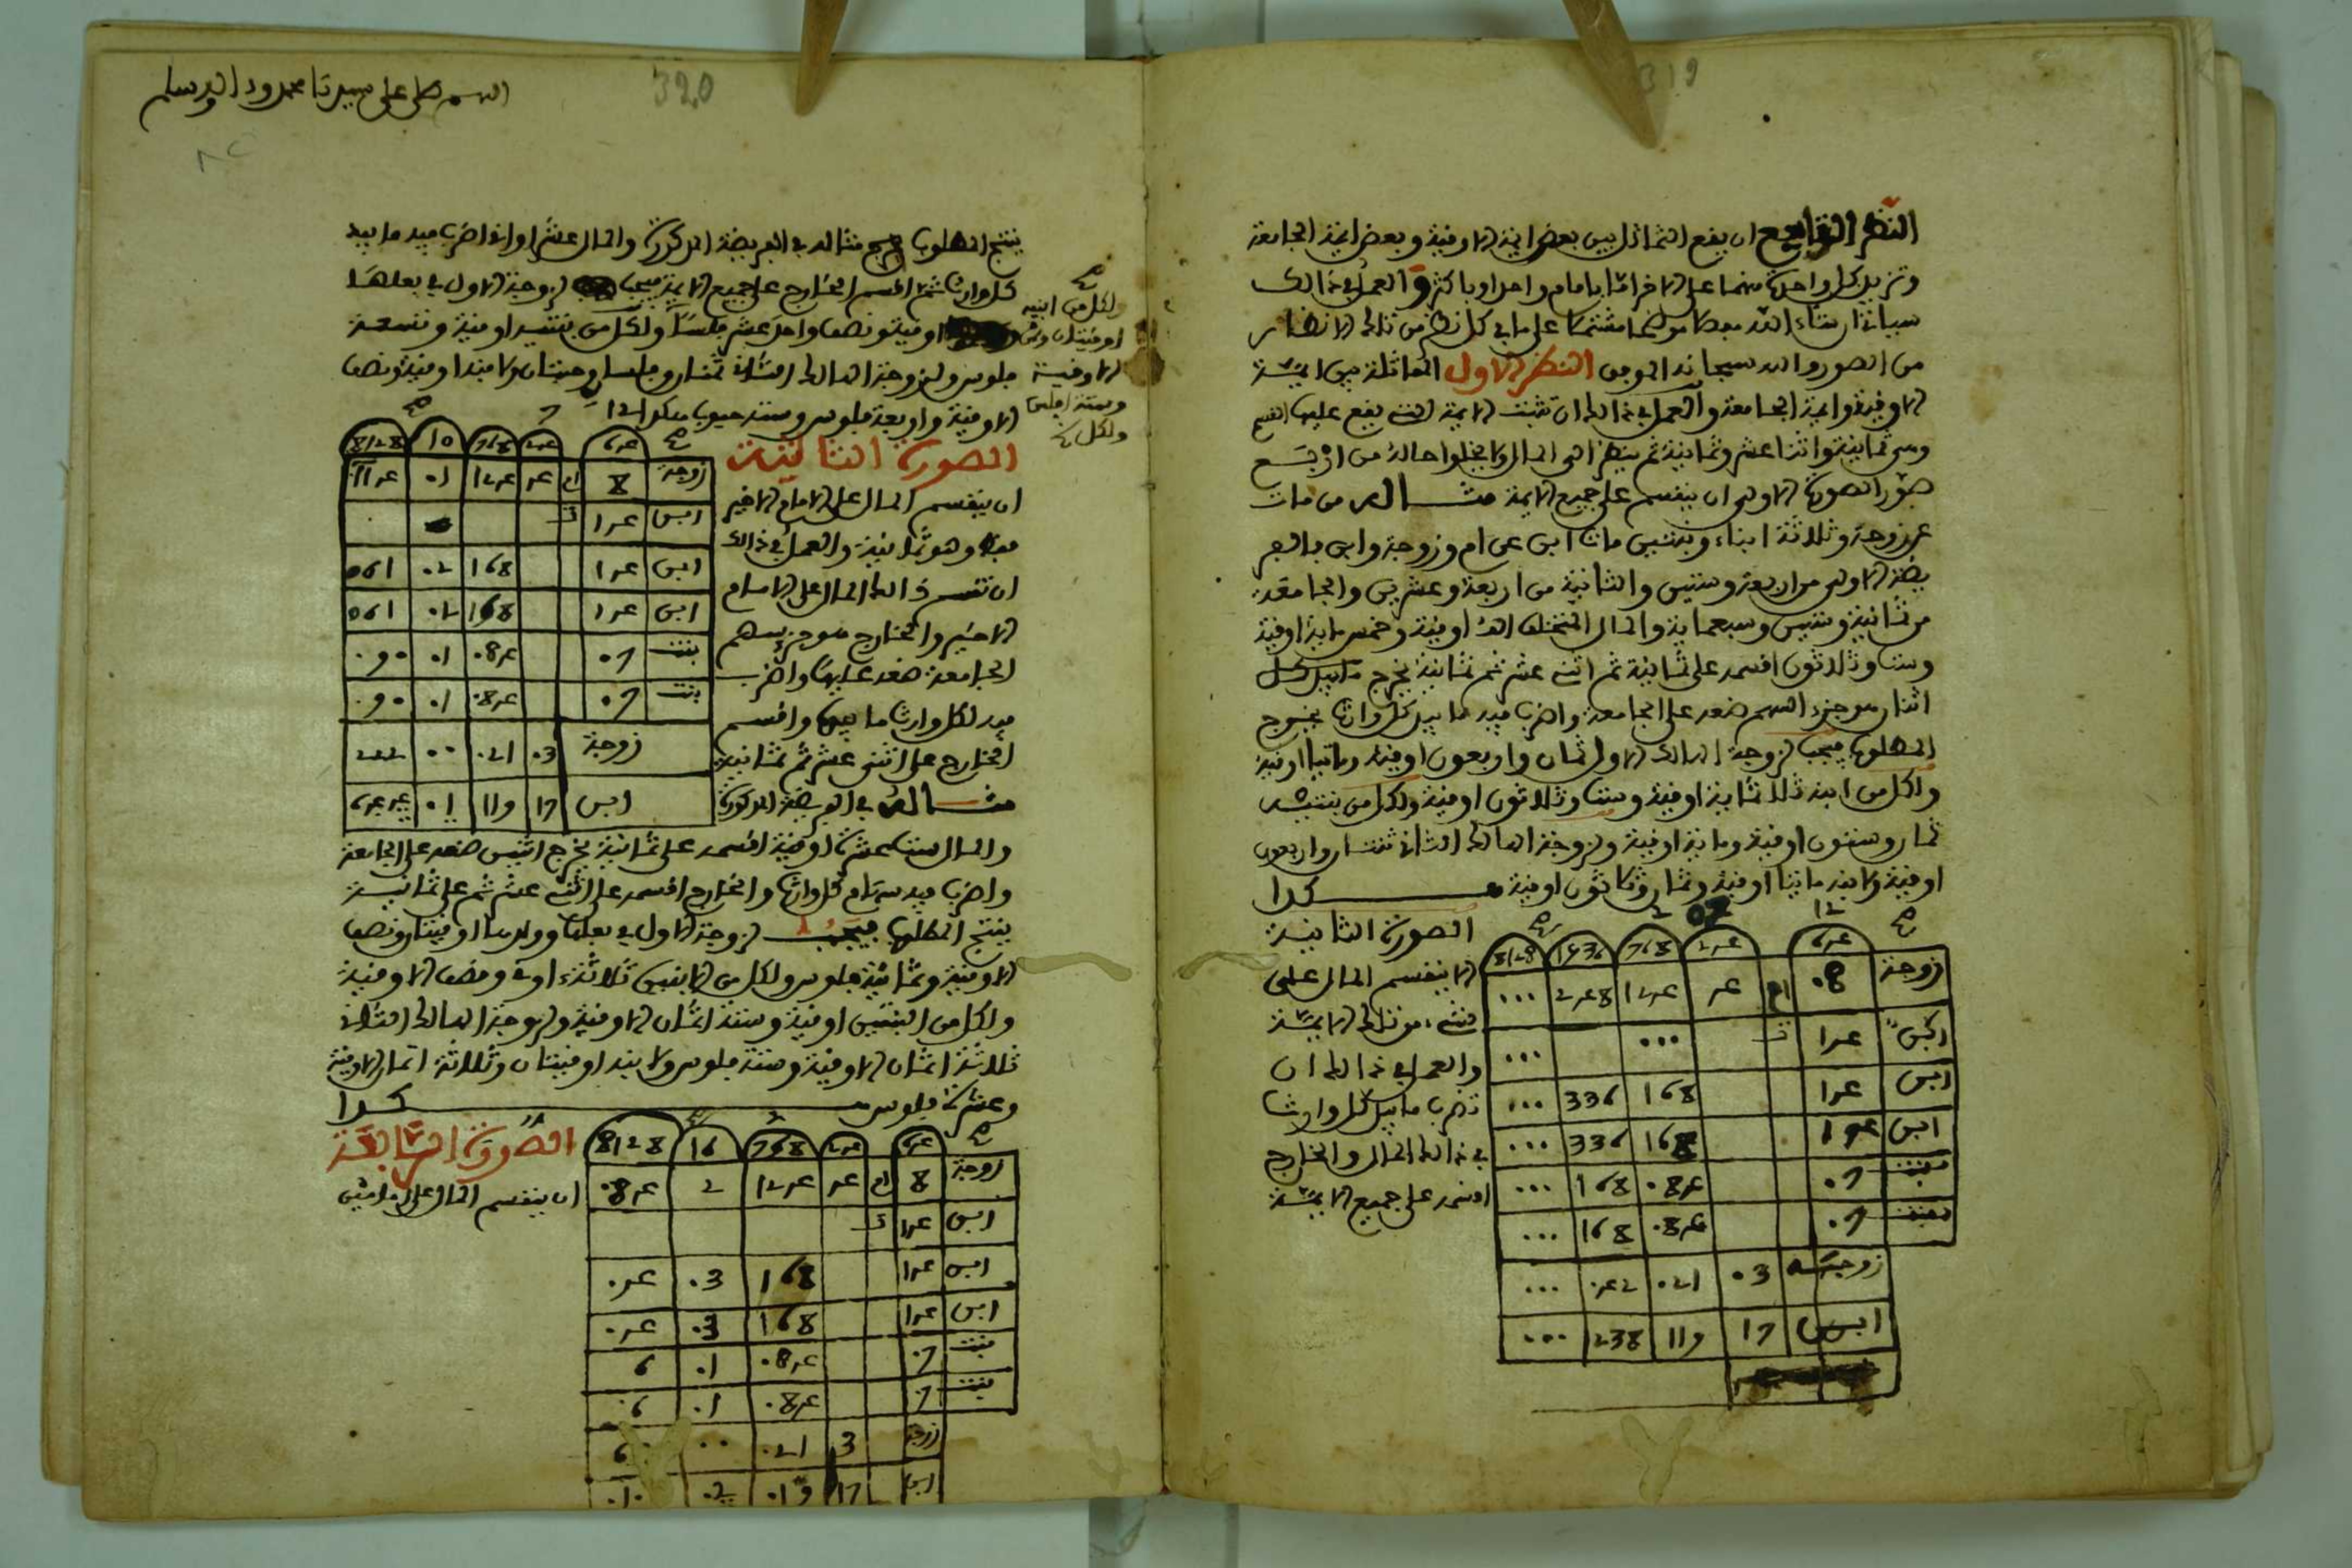 319
النظر الرابع ان يقع التماثل بين بعض ايمة الاوقية وبعض ايمة الجامعة
وتزيد كل واحدة منهما على الاخر اما بامام واحد او باكثر والعمل في ذالك
سياتي ان شاء الله مشتملا على ما في كل نظر من تلك الانظار
من الصور والله سبحانه الموفق النظر الاول المماثلة بين ايمة
الاوقية وايمة الجامعة والعمل في ذالك ان تثبت الايمة التي يقع عليها القسم
وهي ثمانية واثنا عشر وثمانية ثم ينظر الى المال ولا يخلوا حاله من اربع
صور الصورة الاولى ان ينقسم على جميع الايمة مثاله من مات
عن زوجة وثلاثة ابناء وبنتين مات ابن عن ام وزوجة وابن بالفر
يضة الاولى من اربعة وستين والثانية من اربعة وعشرين والجامعة
من ثمانية وستين وسبعماية والمال المتخلف الف اوقية وخمس ماية اوقية
وست وثلاثون اقسمه على ثمانية ثم اثني عشر ثم ثمانية يخرج
اثنان هو جزء السهم ضعه على الجامعة واضرب فيه ما بيد كل وارث يخرج
المطلوب فيجب لزوجة الهالك الاول ثمان واربعون اوقية ومايتا اوقية
ولكل من ابنه ثلاثماية اوقية وست وثلاثون اوقية ولكل من بنتيه
ثمان وستون اوقية وماية اوقية ولزوجة الهالك الثاني ثنتان واربعون
اوقية ولابنه مايتا اوقية وثمان وثلاثون اوقية هكذا
الصورة الثانية
الا ينقسم المال على
شيء من تلك الايمة
والعمل في ذالك ان
تضرب ما بيد كل وارث
في ذالك المال والخارج
اقسمه على جميع الايمة
12
8128 1536 768 24 64
زوجة 08 ام 4 124 248 ...
ابن 14 ت ... ...
ابن 14 168 336 ...
ابن 14 168 336 ...
بنت 07 084 168 ...
بنت 07 084 168 ...
زوجة 03 021 042 ...
ابن 17 119 238 ...
320
اللهم صل على سيدنا محمد وءاله وسلم
ينتج المطلوب مثاله في الفريضة المذكورة والمال عشر اواق اضرب فيه ما بيد
كل وارث ثم اقسم الخارج على جميع الايمة فيجب لزوجة الاول في بعلها
اوقية ونصف واحد عشر فلسا ولكل من بنتيه اوقية وتسعة
فلوس ولزوجة الهالك الثاني ثمنان وفلسان وحبتان ولابنه اوقية ونصف
الاوقية واربعة فلوس وستة حبوب هكذا
ولكل من ابنيه
اوقيتان
الاوقية
وستة افلس
ولكل
الصورة الثالثة
ان ينقسم المال على الامام الاخير
فقط وهو ثمانية والعمل في ذالك
ان تقسم ذالك المال على الامام
الاخير والخارج هو جزء سهم
الجامعة ضعه عليها واضرب
فيه لكل وارث ما بيده واقسم
الخارج على اثني عشر ثم ثمانية
مثاله في الفريضة المذكورة
8128 10 768 24 64
زوجة 8 ام 4 124 01
ابن 14 ت
ابن 14 168 02 561
ابن 14 168 02 561
بنت 07 084 01 090
بنت 07 084 01 090
زوجة 03 021 00 222
ابن 17 119 01
والمال ست عشرة اوقية اقسمه على ثمانية يخرج اثنين ضعه على الجامعة
واضرب فيه سهام كل وارث والخارج اقسمه على اثني عشر ثم على ثمانية
ينتج المطلوب فيجب لزوجة الاول في بعلها وولدها اوقيتان ونصف
الاوقية وثمانية فلوس ولكل من الابنين ثلاثة اواق ونصف الاوقية
ولكل من البنتين اوقية وستة اثمان الاوقية ولزوجة الهالك الثاني
ثلاثة اثمان الاوقية وستة فلوس ولابنه اوقيتان وثلاثة اثمان الاوقية
وعشرة فلوس هكذا
الصورة الرابعة
ان ينقسم المال على امامين
8128 16 768 24 64
زوجة 8 ام 4 124 2 084
ابن 14 ت
ابن 14 168 03 04
ابن 14 168 03 04
بنت 07 084 01 6
بنت 07 084 01 06
زوجة 3 021 00
ابن 17 02